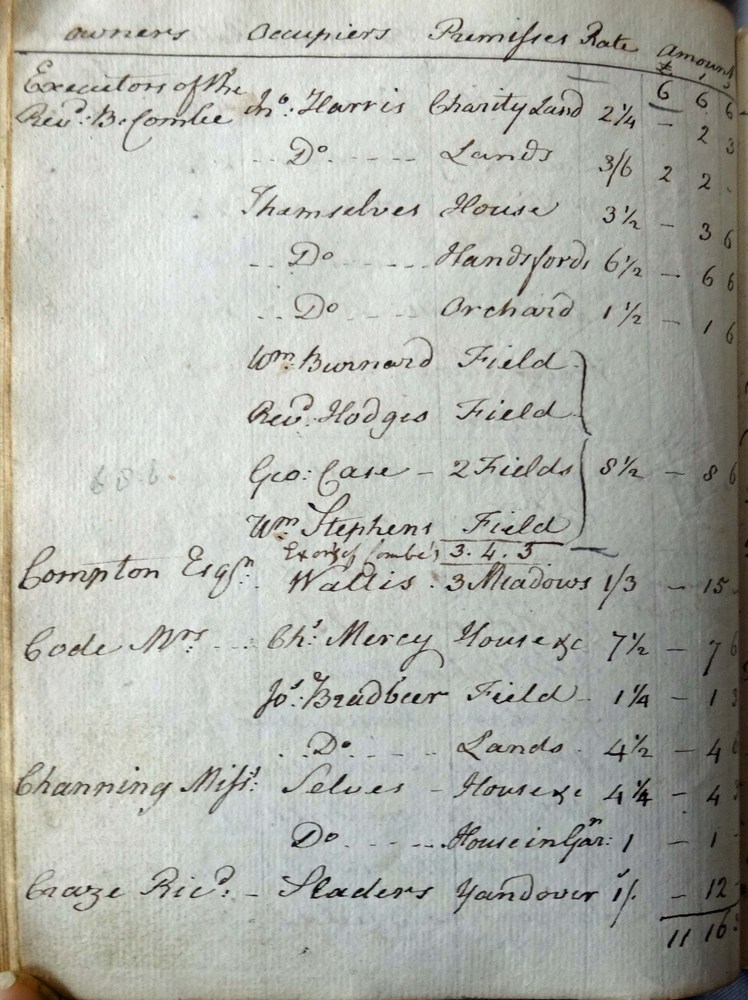 Owners Occupiers Premisses Rate Amount
£
6 6 6
Executors of the
Revd. B. Combe Jno. Harris Charity Land 2 1/4 - 2 3
Do Lands 3/6 2 2 -
Themselves House 3 1/2 - 3 6
Do Handsfords 6 1/2 - 6 6
Do Orchard 1 1/2 - 1 6
Wm. Burnard Field
Revd. Hodges Field
Geo: Case - 2 Fields 8 1/2 - 8 6
Wm Stephens Field
Exors of Combe's 3.4.3
Compton Esqr. Wallis 3 Meadows 1/3 - 15
Code Mrs Chs. Mercy House &c 7 1/2 - 7 6
Jos. Bradbeer Field - 1 1/4 - 1 3
Do Lands 4 1/2 - 4 6
Channing Miss: Selves - House &c 4 1/4 - 4
Do House in Garn: 1 - 1
Craze Ricd. - Sladers Yandover 1/ - 12
11 16